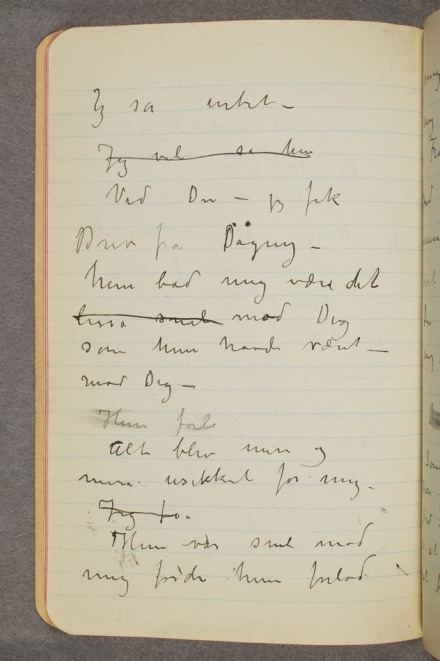 Jeg sa intet –
Jeg vil sa hun
Ved Du – jeg fik
Brev fra Dagny –
hun bad mig være det
mod Dig
som hun havde været –
mod Dig –
Hun forlo
Alt blev mere og
mere usikkert for mig.
Jeg fo.
Hun var snil mod
mig før hun forlod